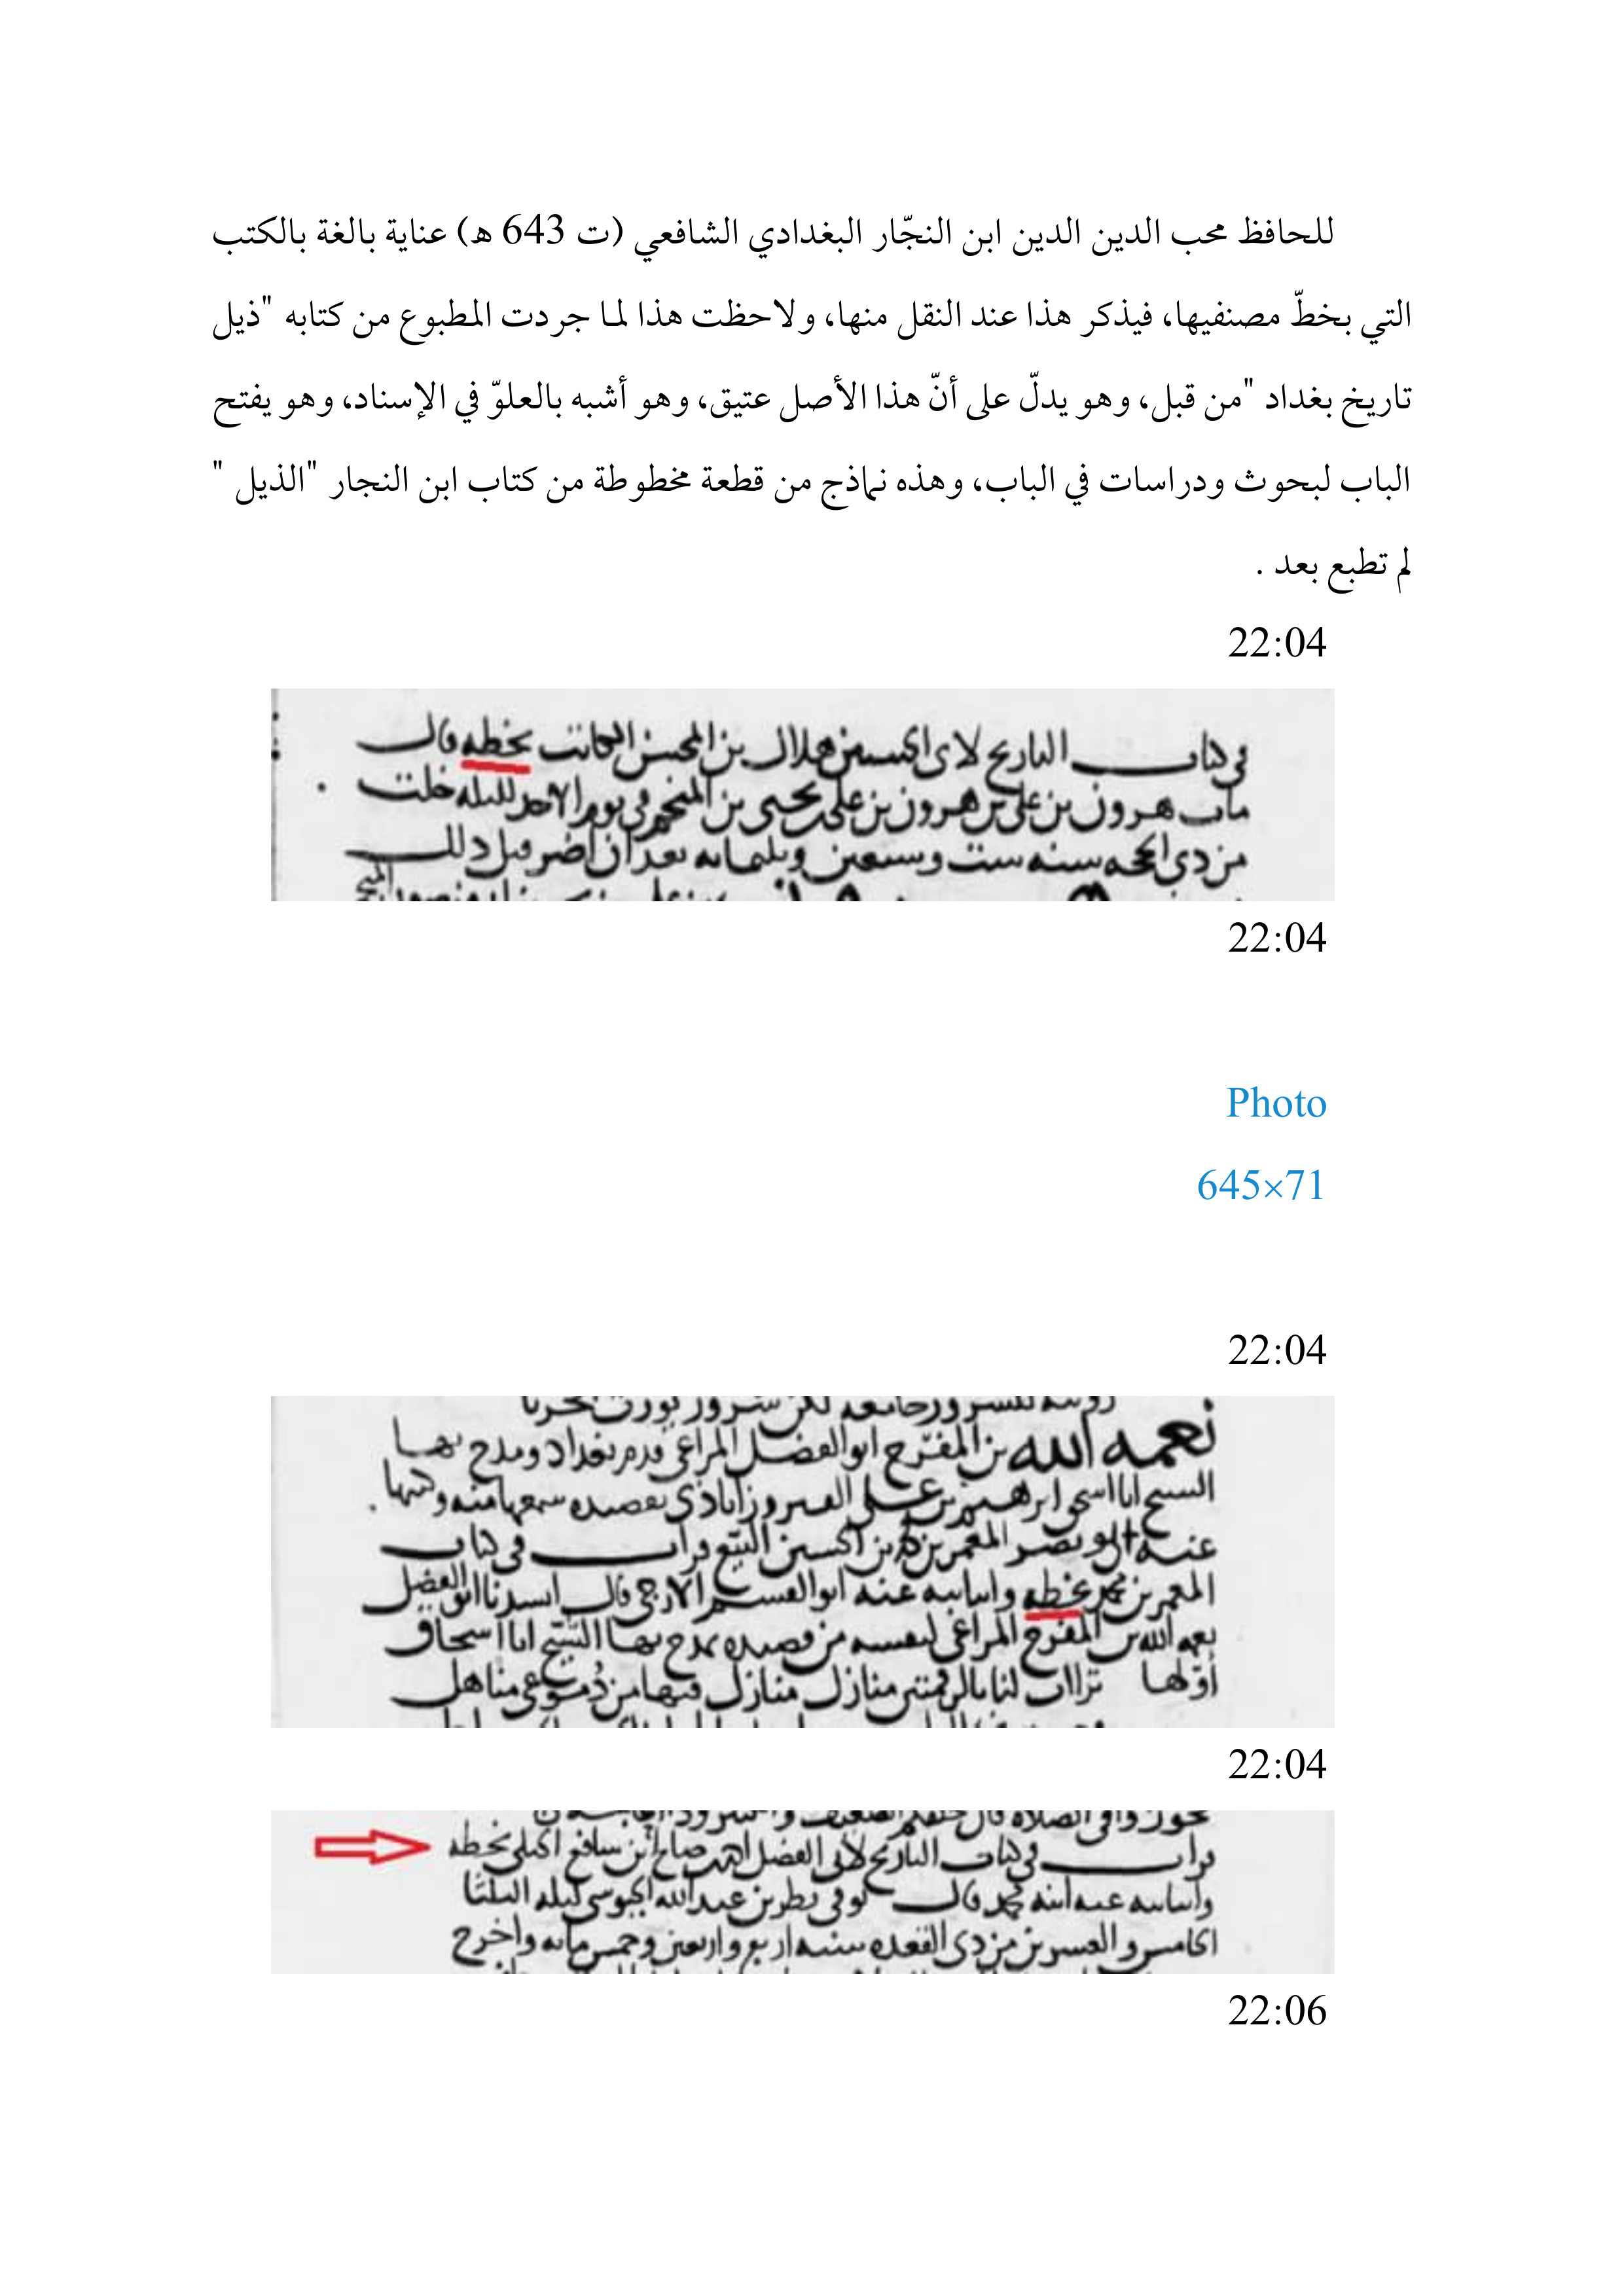 للحافظ محب الدين الدين ابن النجّار البغدادي الشافعي (ت 643 ه) عناية بالغة بالكتب
التي بخطّ مصنفيها، فيذكر هذا عند النقل منها، ولاحظت هذا لما جردت المطبوع من كتابه "ذيل
تاريخ بغداد "من قبل، وهو يدلّ على أنّ هذا الأصل عتيق، وهو أشبه بالعلوّ في الإسناد، وهو يفتح
الباب لبحوث ودراسات في الباب، وهذه نماذج من قطعة مخطوطة من كتاب ابن النجار "الذيل "
لم تطبع بعد .
22:04
في كتاب التاريخ لابي الحسين هلال بن المحسن الكاتب بخطه قال
مات هرون بن علي بن هرون بن علي بن يحيى بن المنجم في يوم الاحد لليله خلت
من ذي الحجه سنه ست وسبعين وثلثمائه بعد ان اضر قبل ذلك
22:04
Photo
645×71
22:04
نعمه الله بن المفرج ابو الفضل المراغي قدم بغداد ومدح بها
الشيخ ابا اسحق ابرهيم بن علي الفيروزابادي بقصيده سمعها منه وكتبها
عنه ابو نصر المعمر بن محمد بن الحسين البيع قرات في كتاب
المعمر بن محمد بخطه وانبانيه عنه ابو القسم الازجي قال انشدنا ابو الفضل
نعمه الله بن المفرج المراغي لنفسه من قصيده يمدح بها الشيخ ابا اسحاق
اولها تراات لنا بالرقمتين منازل منازل فيها من دموعي مناهل
22:04
قرات في كتاب التاريخ لابي الفضل احمد بن صالح بن شافع الجيلي بخطه
وانبانيه عنه ابنه محمد قال توفي قطر بن عبد الله الحبوسي ليله الثلثا
الخامس والعشرين من ذي القعده سنه اربع واربعين وخمس مائه واخرج
22:06